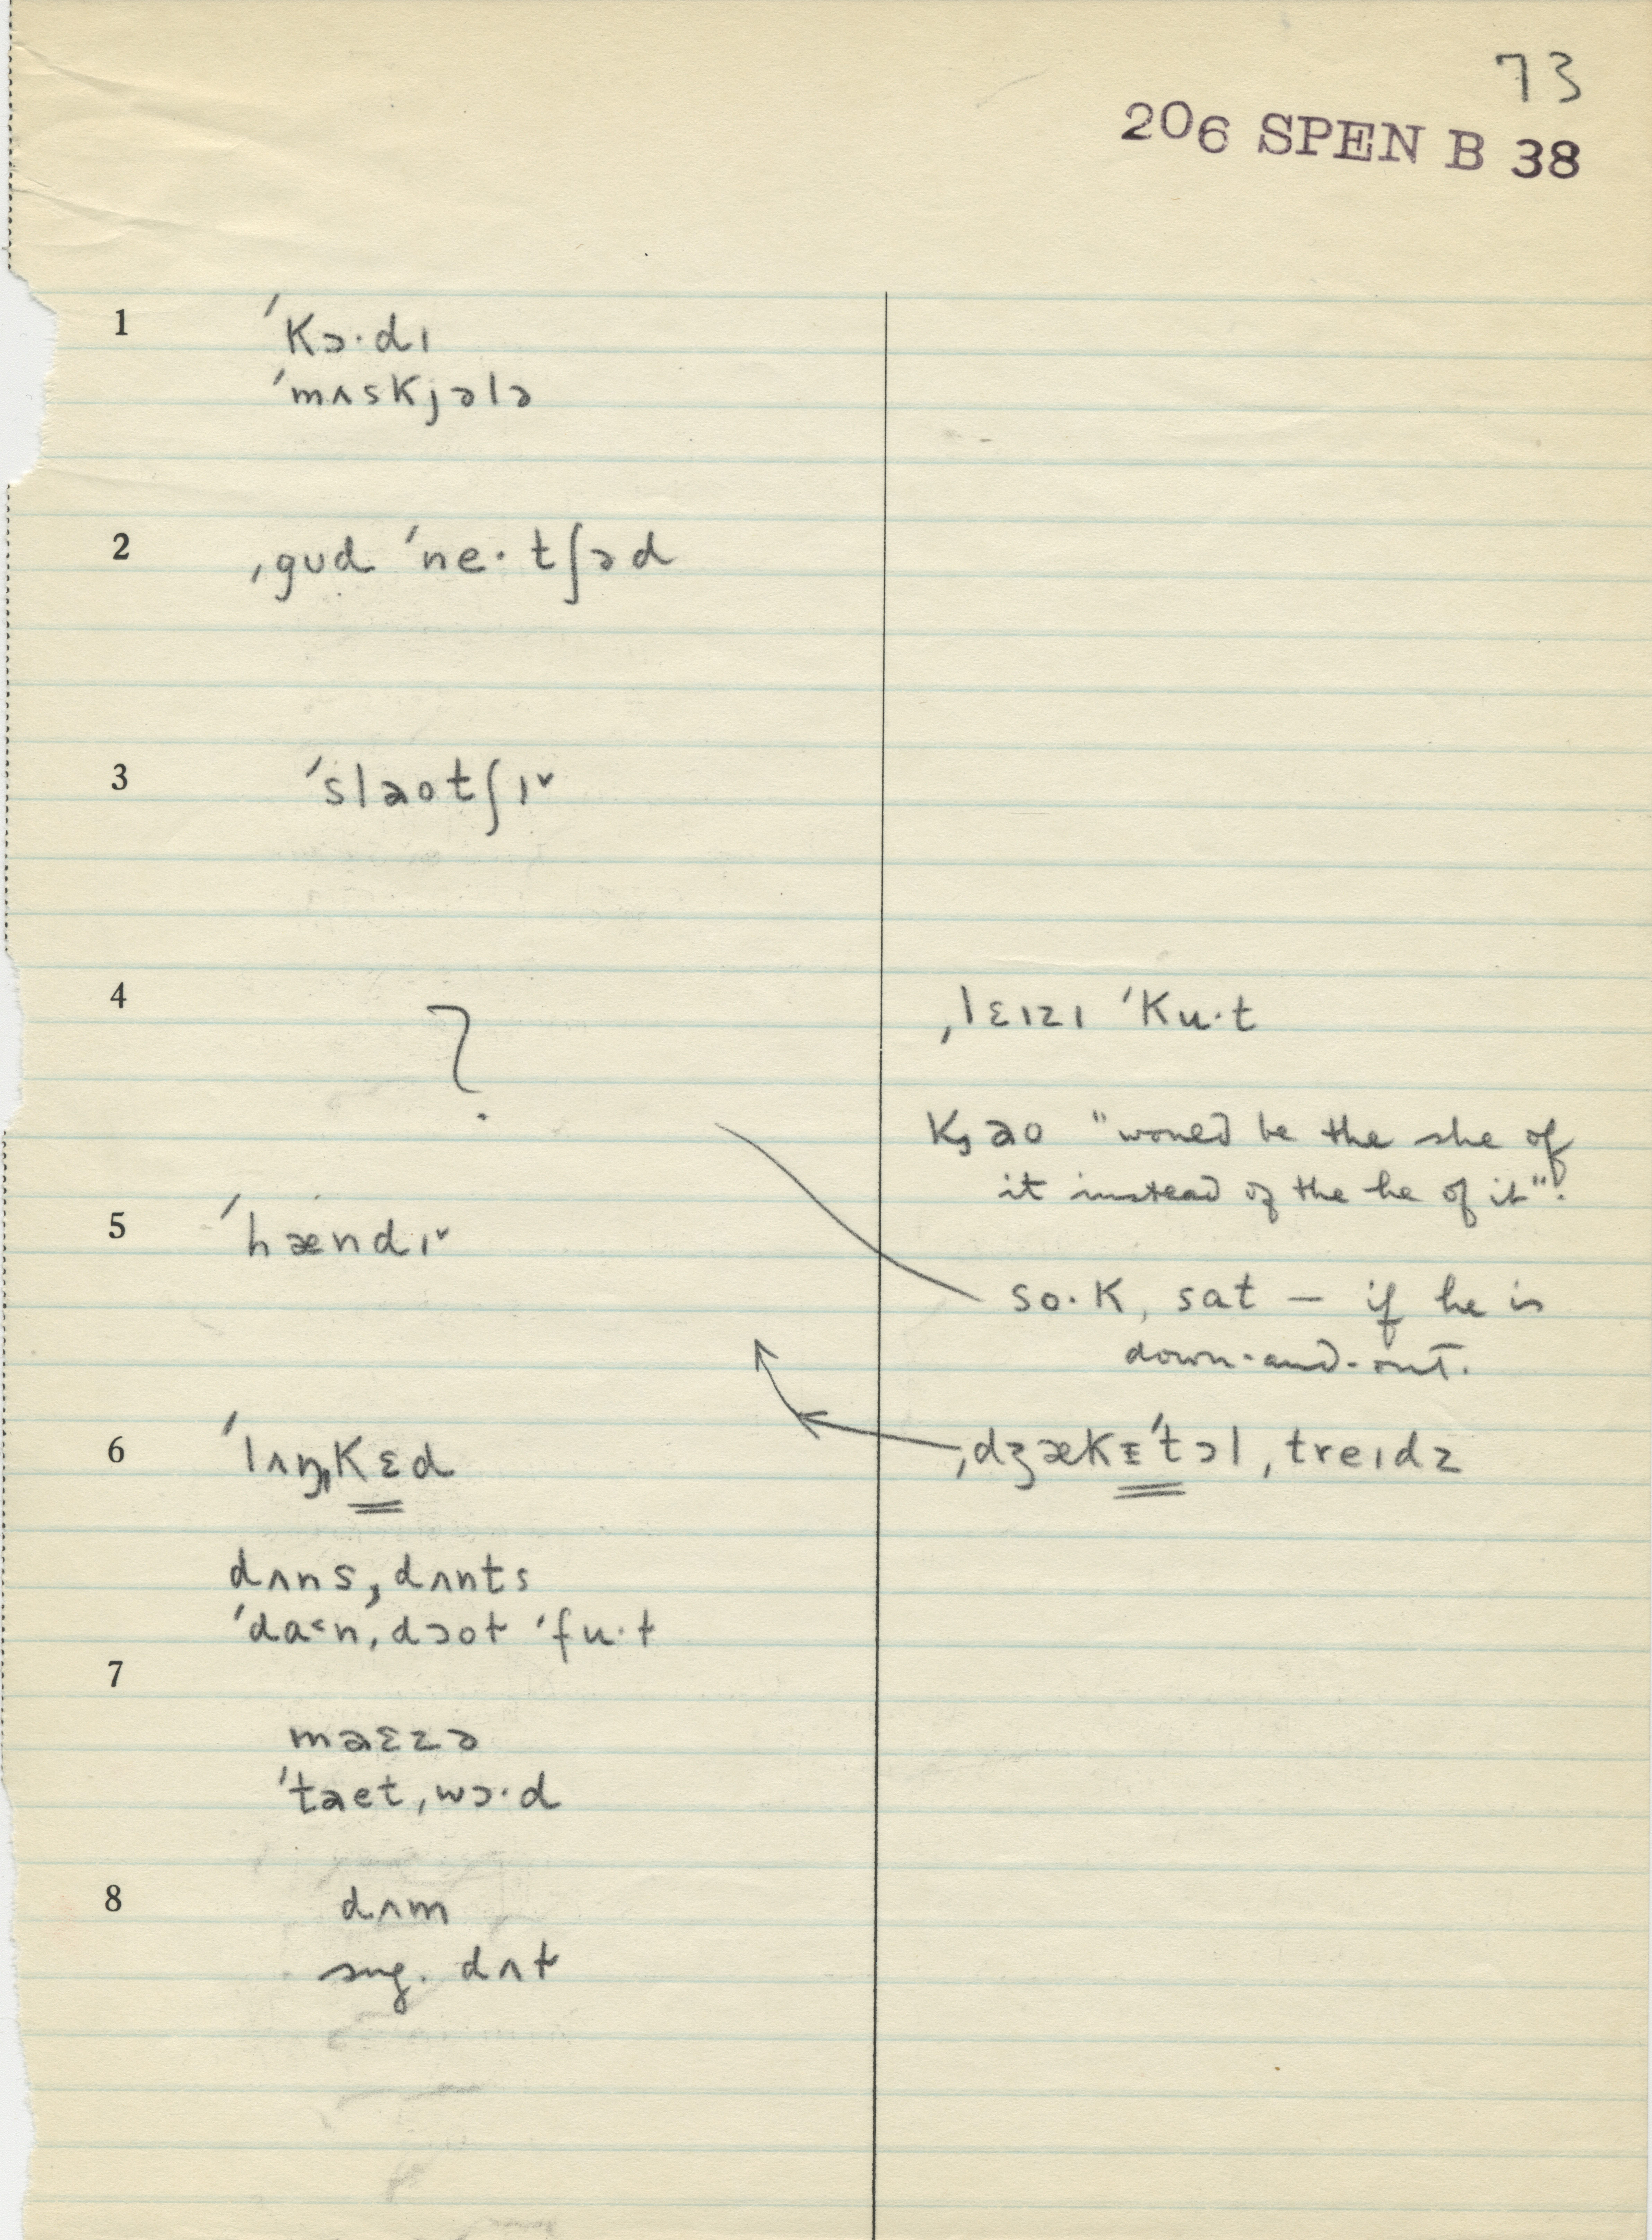 73
206 SPEN B 38
1 ˈkɔ·dɪ
ˈmʌskjələ
2 ˌgʊd ˈne·tʃəd
3 ˈsləotʃɪ˅
4 ? ˌlɛɪzɪ ˈku·t
"would be the she of
it instead of the he of it".
5 ˈhændɪ˅
so·k, sat — if he is
down-and-out.
6 ˈlʌŋˌkɛd ˌdʒækɛˈtɔl ˌtreɪdz
dʌns, dʌnts
ˈda˂nˌdɔot ˈfu·t
7
məɛzə
ˈtaetˌwɔ·d
8 dʌm
sug. dʌt